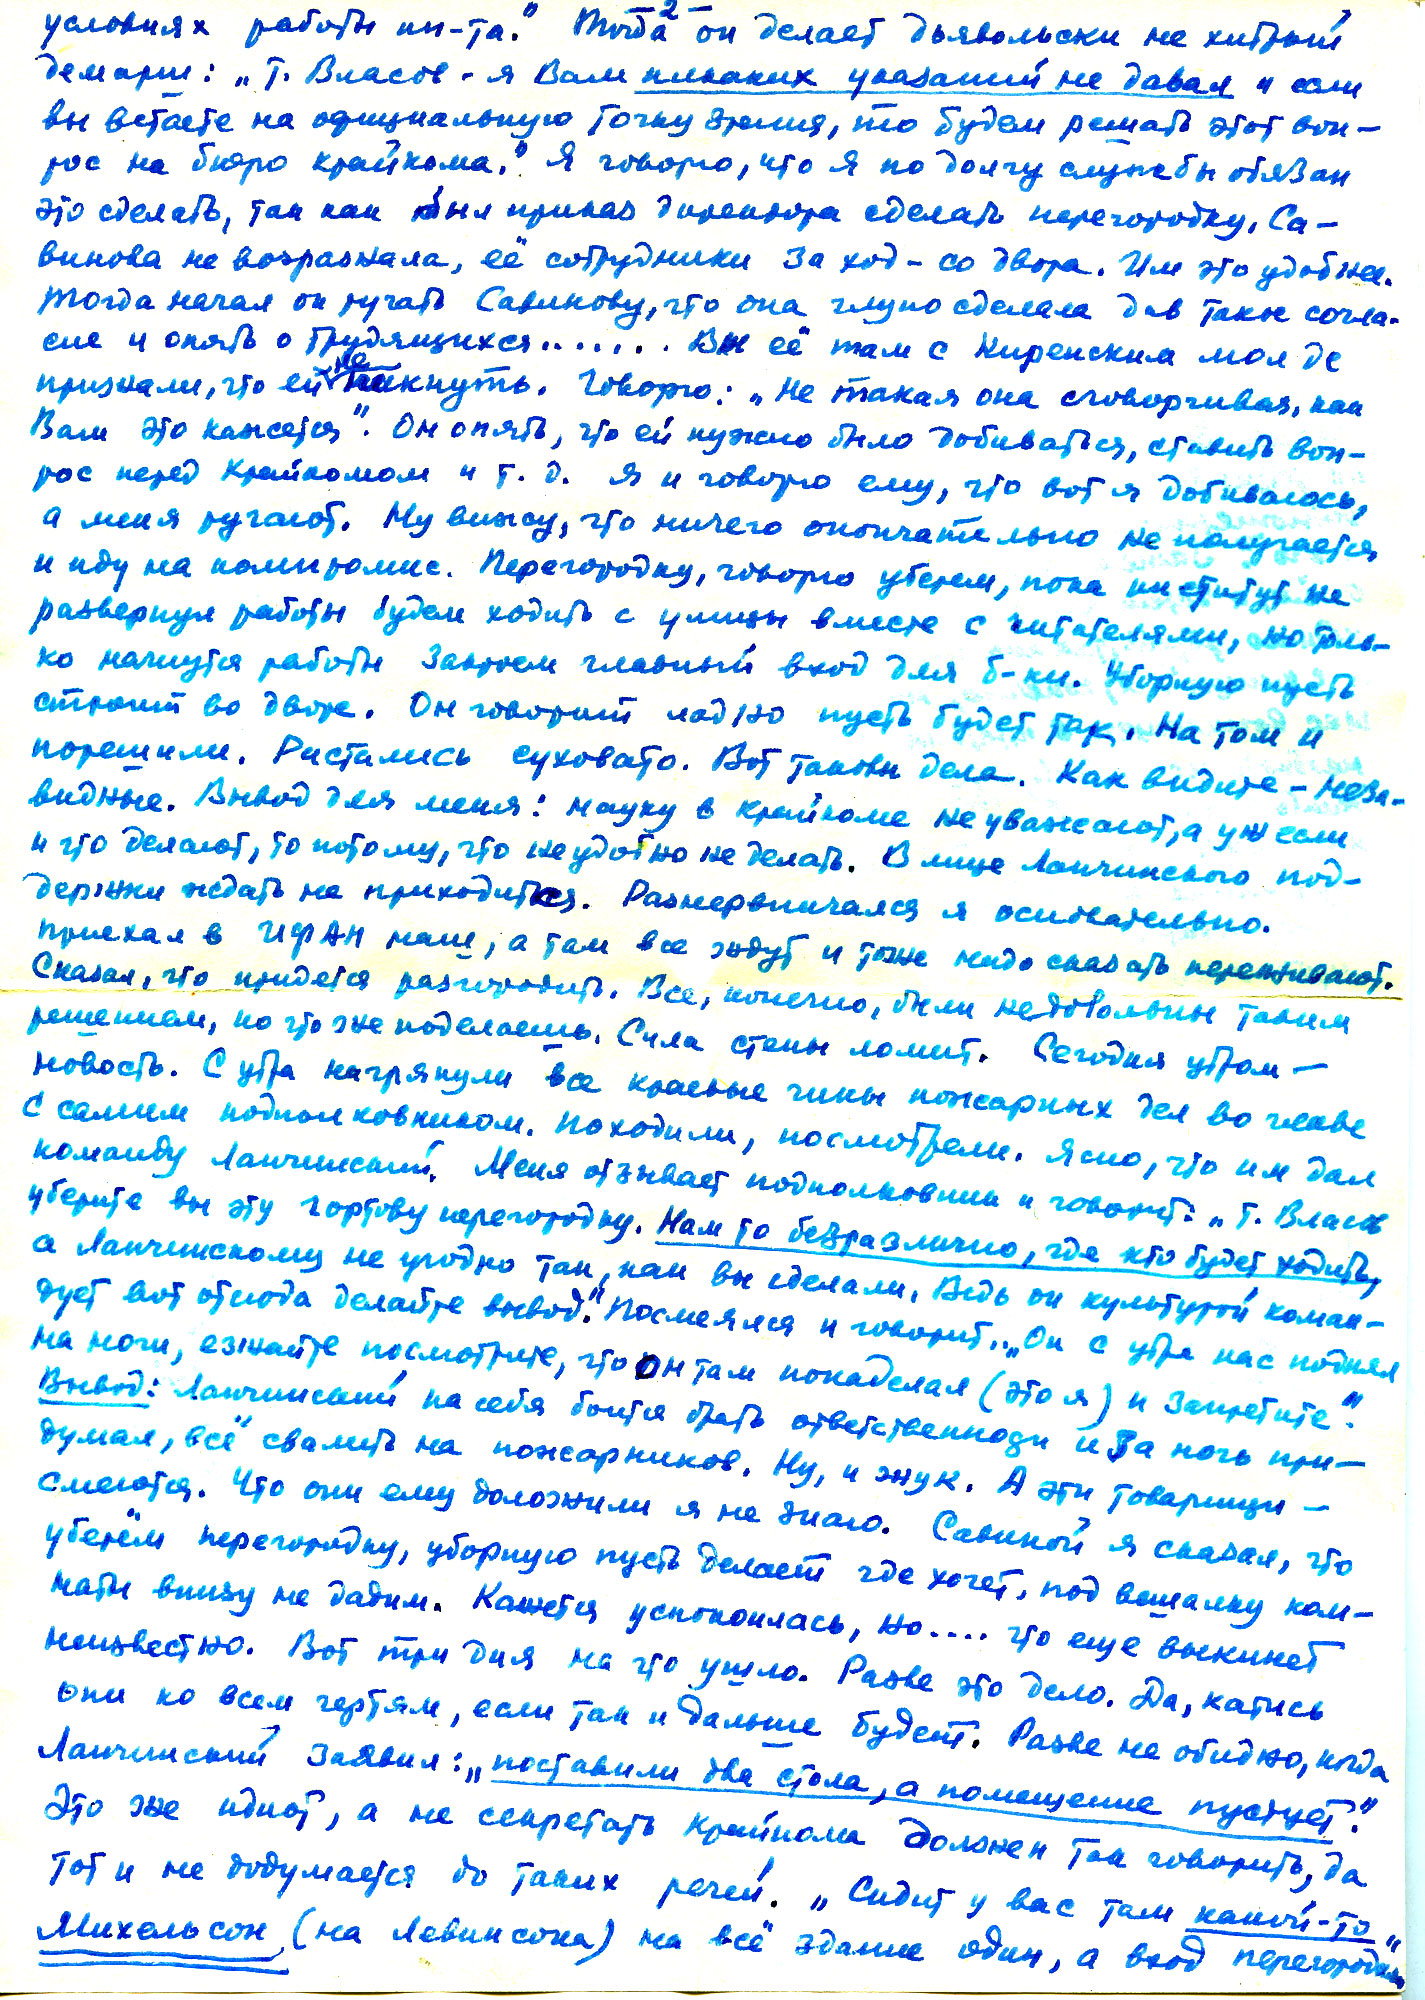 - 2 -
условиях работы ин-та." Тогда он делает дьявольски не хитрый
демарш: „т. Власов - я Вам никаких указаний не давал и если
вы встаете на официальную точку зрения, то будем решать этот воп-
рос на бюро крайкома." Я говорю, что я по долгу службы обязан
это сделать, так как был приказ директора сделать перегородку. Са-
винова не возражала, её сотрудники за ход - со двора. Им это удобнее.
Тогда начал он ругать Савинову, что она глупо сделала дав такое согла-
сие и опять о трудящихся....... Вы её там с Киренским мол де
прижали, что ей не пикнуть. Говорю: „Не такая она сговорчивая, как
Вам это кажется". Он опять, что ей нужно было добиваться, ставить воп-
рос перед Крайкомом и т. д. Я и говорю ему, что вот я добивалось,
а меня ругают. Ну вижу, что ничего окончательно не получается
и иду на компромис. Перегородку, говорю уберем, пока институт не
развернул работы будем ходить с улицы вместе с читателями, но толь-
ко начнутся работы закроем главный вход для б-ки. Уборную пусть
строит во дворе. Он говорит ладно пусть будет так. На том и
порешили. Растались суховато. Вот таковы дела. Как видите - неза-
видные. Вывод для меня: науку в крайкоме не уважают, а уж если
и что делают, то потому, что неудобно не делать. В лице Лапчинского под-
держки ждать не приходится. Разнервничался я основательно.
Приехал в ИФАН наш, а там все ждут и тоже надо сказать переживают.
Сказал, что придется разгородить. Все, конечно, были недовольны таким
решением, но что же поделаешь. Сила стены ломит. Сегодня утром -
новость. С утра нагрянули все красные чины пожарных дел во главе
с самим подполковником. Походили, посмотрели. Ясно, что им дал
команду Лапчинский. Меня отзывает подполковник и говорит: „т. Власов
уберите вы эту чортову перегородку. Нам то безразлично, где кто будет ходить,
а Лапчинскому не угодно так, как вы сделали. Ведь он культурой коман-
дует вот отсюда делайте вывод." Посмеялся и говорит.. „Он с утра нас поднял
на ноги, езжайте посмотрите, что он там понаделал (это я) и запретите".
Вывод: Лапчинский на себя боится брать ответственноди и за ночь при-
думал, всё свалить на пожарников. Ну, и жук. А эти товарищи -
смеются. Что они ему доложили я не знаю. Савиной я сказал, что
уберём перегородку, уборную пусть делает где хочет, под вешалку ком-
наты внизу не дадим. Кажется успокоилась, но.... что еще выкинет
неизвестно. Вот три дня на что ушло. Разве это дело. Да, катись
они ко всем чертям, если так и дальше будет. Разве не обидно, когда
Лапчинский заявил: „поставили два стола, а помещение пустует".
Это же идиот, а не секретать крайкома должен так говорить, да
тот и не додумается до таких речей. „Сидит у вас там какой-то
Михельсон (на Левинсона) на всё здание один, а вход перегородили"